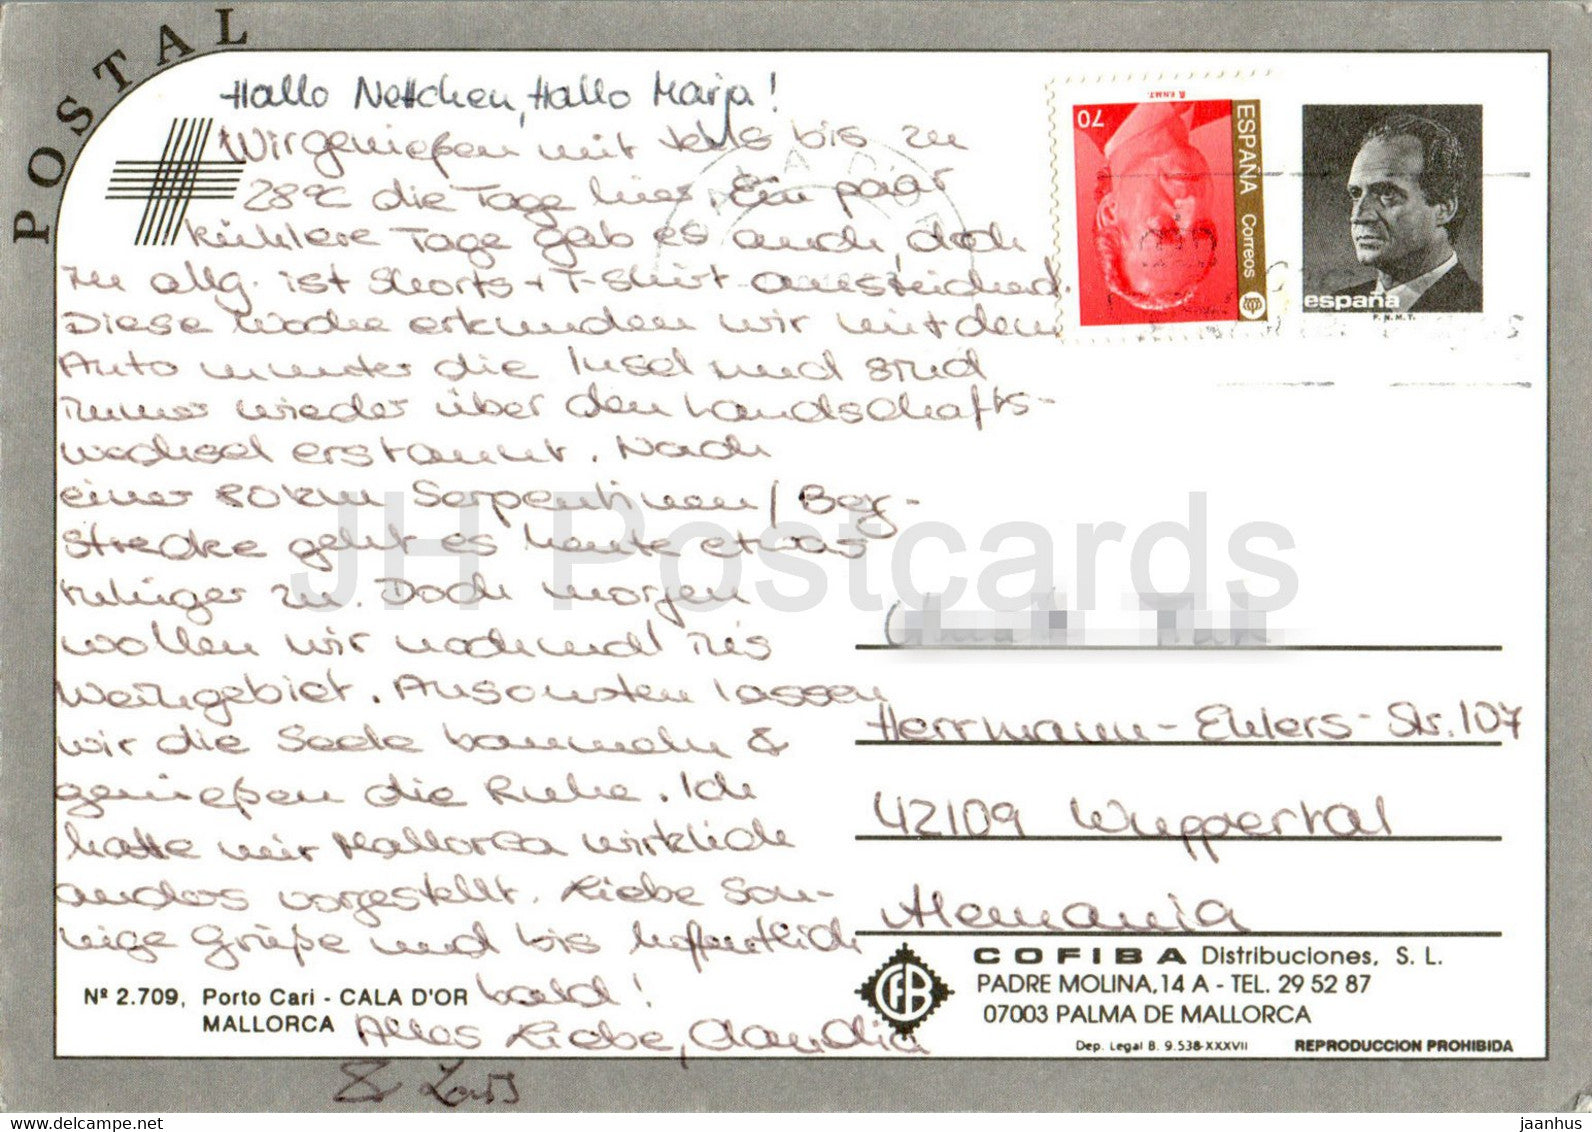 POSTAL
Hallo Nettchen, Hallo Marja!
Wir genießen mit teils bis zu
28°C die Tage hier. Ein paar
kühlere Tage gab es auch, doch
zu allg. ist Shorts + T-Shirt ausreichend.
Diese Woche erkunden wir mit dem
Auto munter die Insel und sind
immer wieder über den Landschafts-
wechsel erstaunt. Nach
einer 80 km Serpentinen/Berg-
strecke geht es heute etwas
ruhiger zu. Doch morgen
wollen wir nochmal ins
Weingebiet. Ansonsten lassen
wir die Seele baumeln &
genießen die Ruhe. Ich
hatte mir Mallorca wirklich
anders vorgestellt. Liebe Son-
nige Grüße und bis hoffentlich
bald!
Alles Liebe, Claudia
& Lars
70
ESPAÑA Correos
F.N.M.T.
españa
F.N.M.T.
Herrmann-Ehlers-Str. 107
42109 Wuppertal
Alemania
Nº 2.709, Porto Cari - CALA D'OR
MALLORCA
COFIBA Distribuciones, S. L.
PADRE MOLINA, 14 A - TEL. 29 52 87
07003 PALMA DE MALLORCA
Dep. Legal B. 9.538-XXXVII
REPRODUCCION PROHIBIDA
JH Postcards
delcampe.net
jaanhus